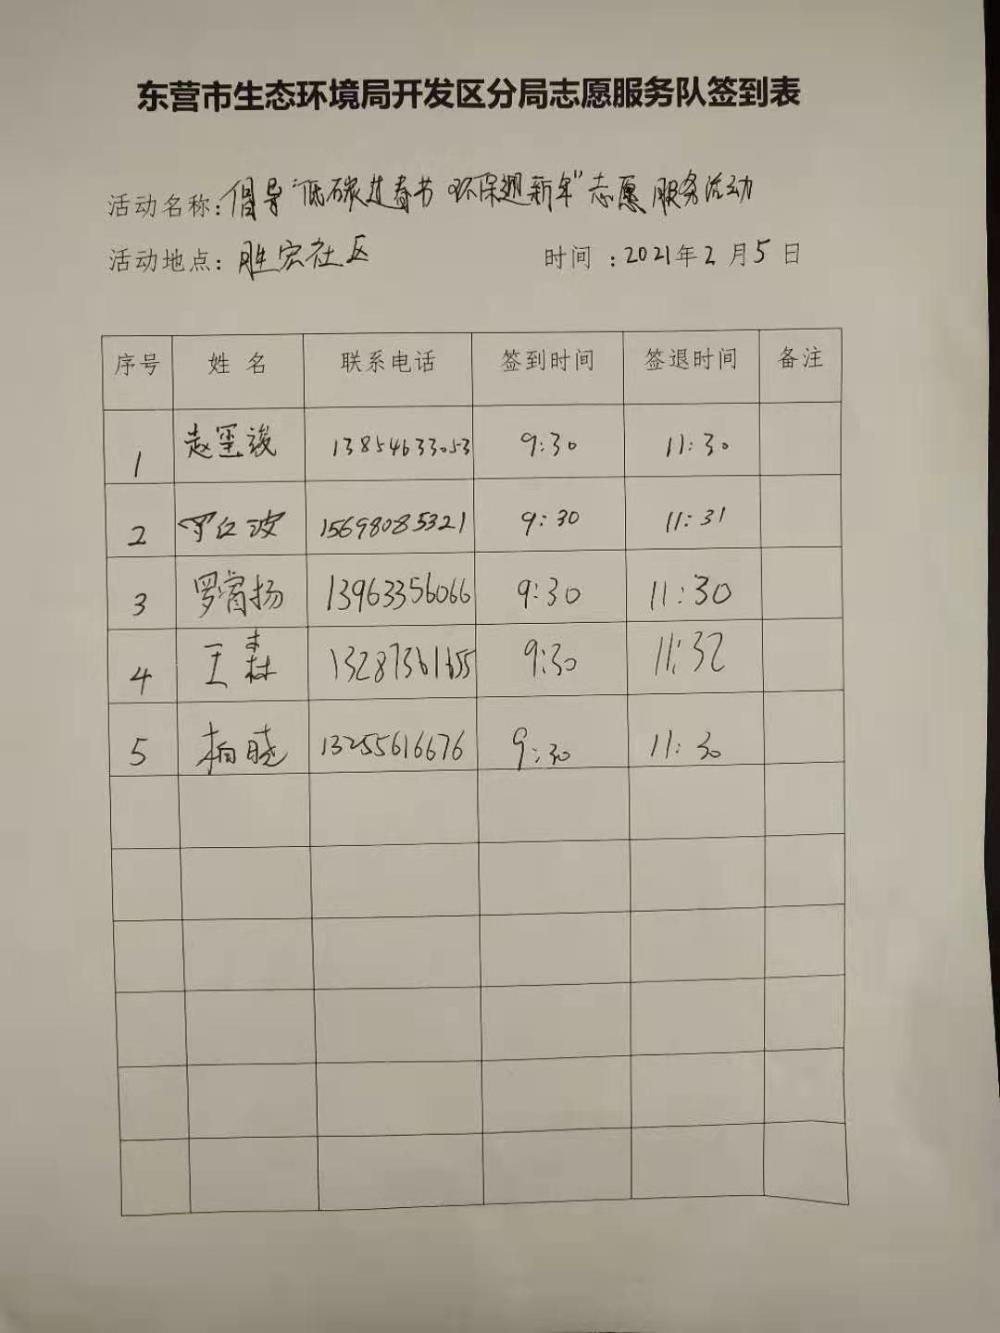 东营市生态环境局开发区分局志愿服务队签到表
活动名称:倡导"低碳过春节 环保迎新年"志愿服务活动
活动地点:胜宏社区 时间:2021年2月5日
序号 姓名 联系电话 签到时间 签退时间 备注
1 赵 13854633053 9:30 11:30
2 15698085321 9:30 11:31
3 罗睿扬 13963356066 9:30 11:30
4 王森 13287361655 9:30 11:32
5 柏晓 13255616676 9:30 11:30